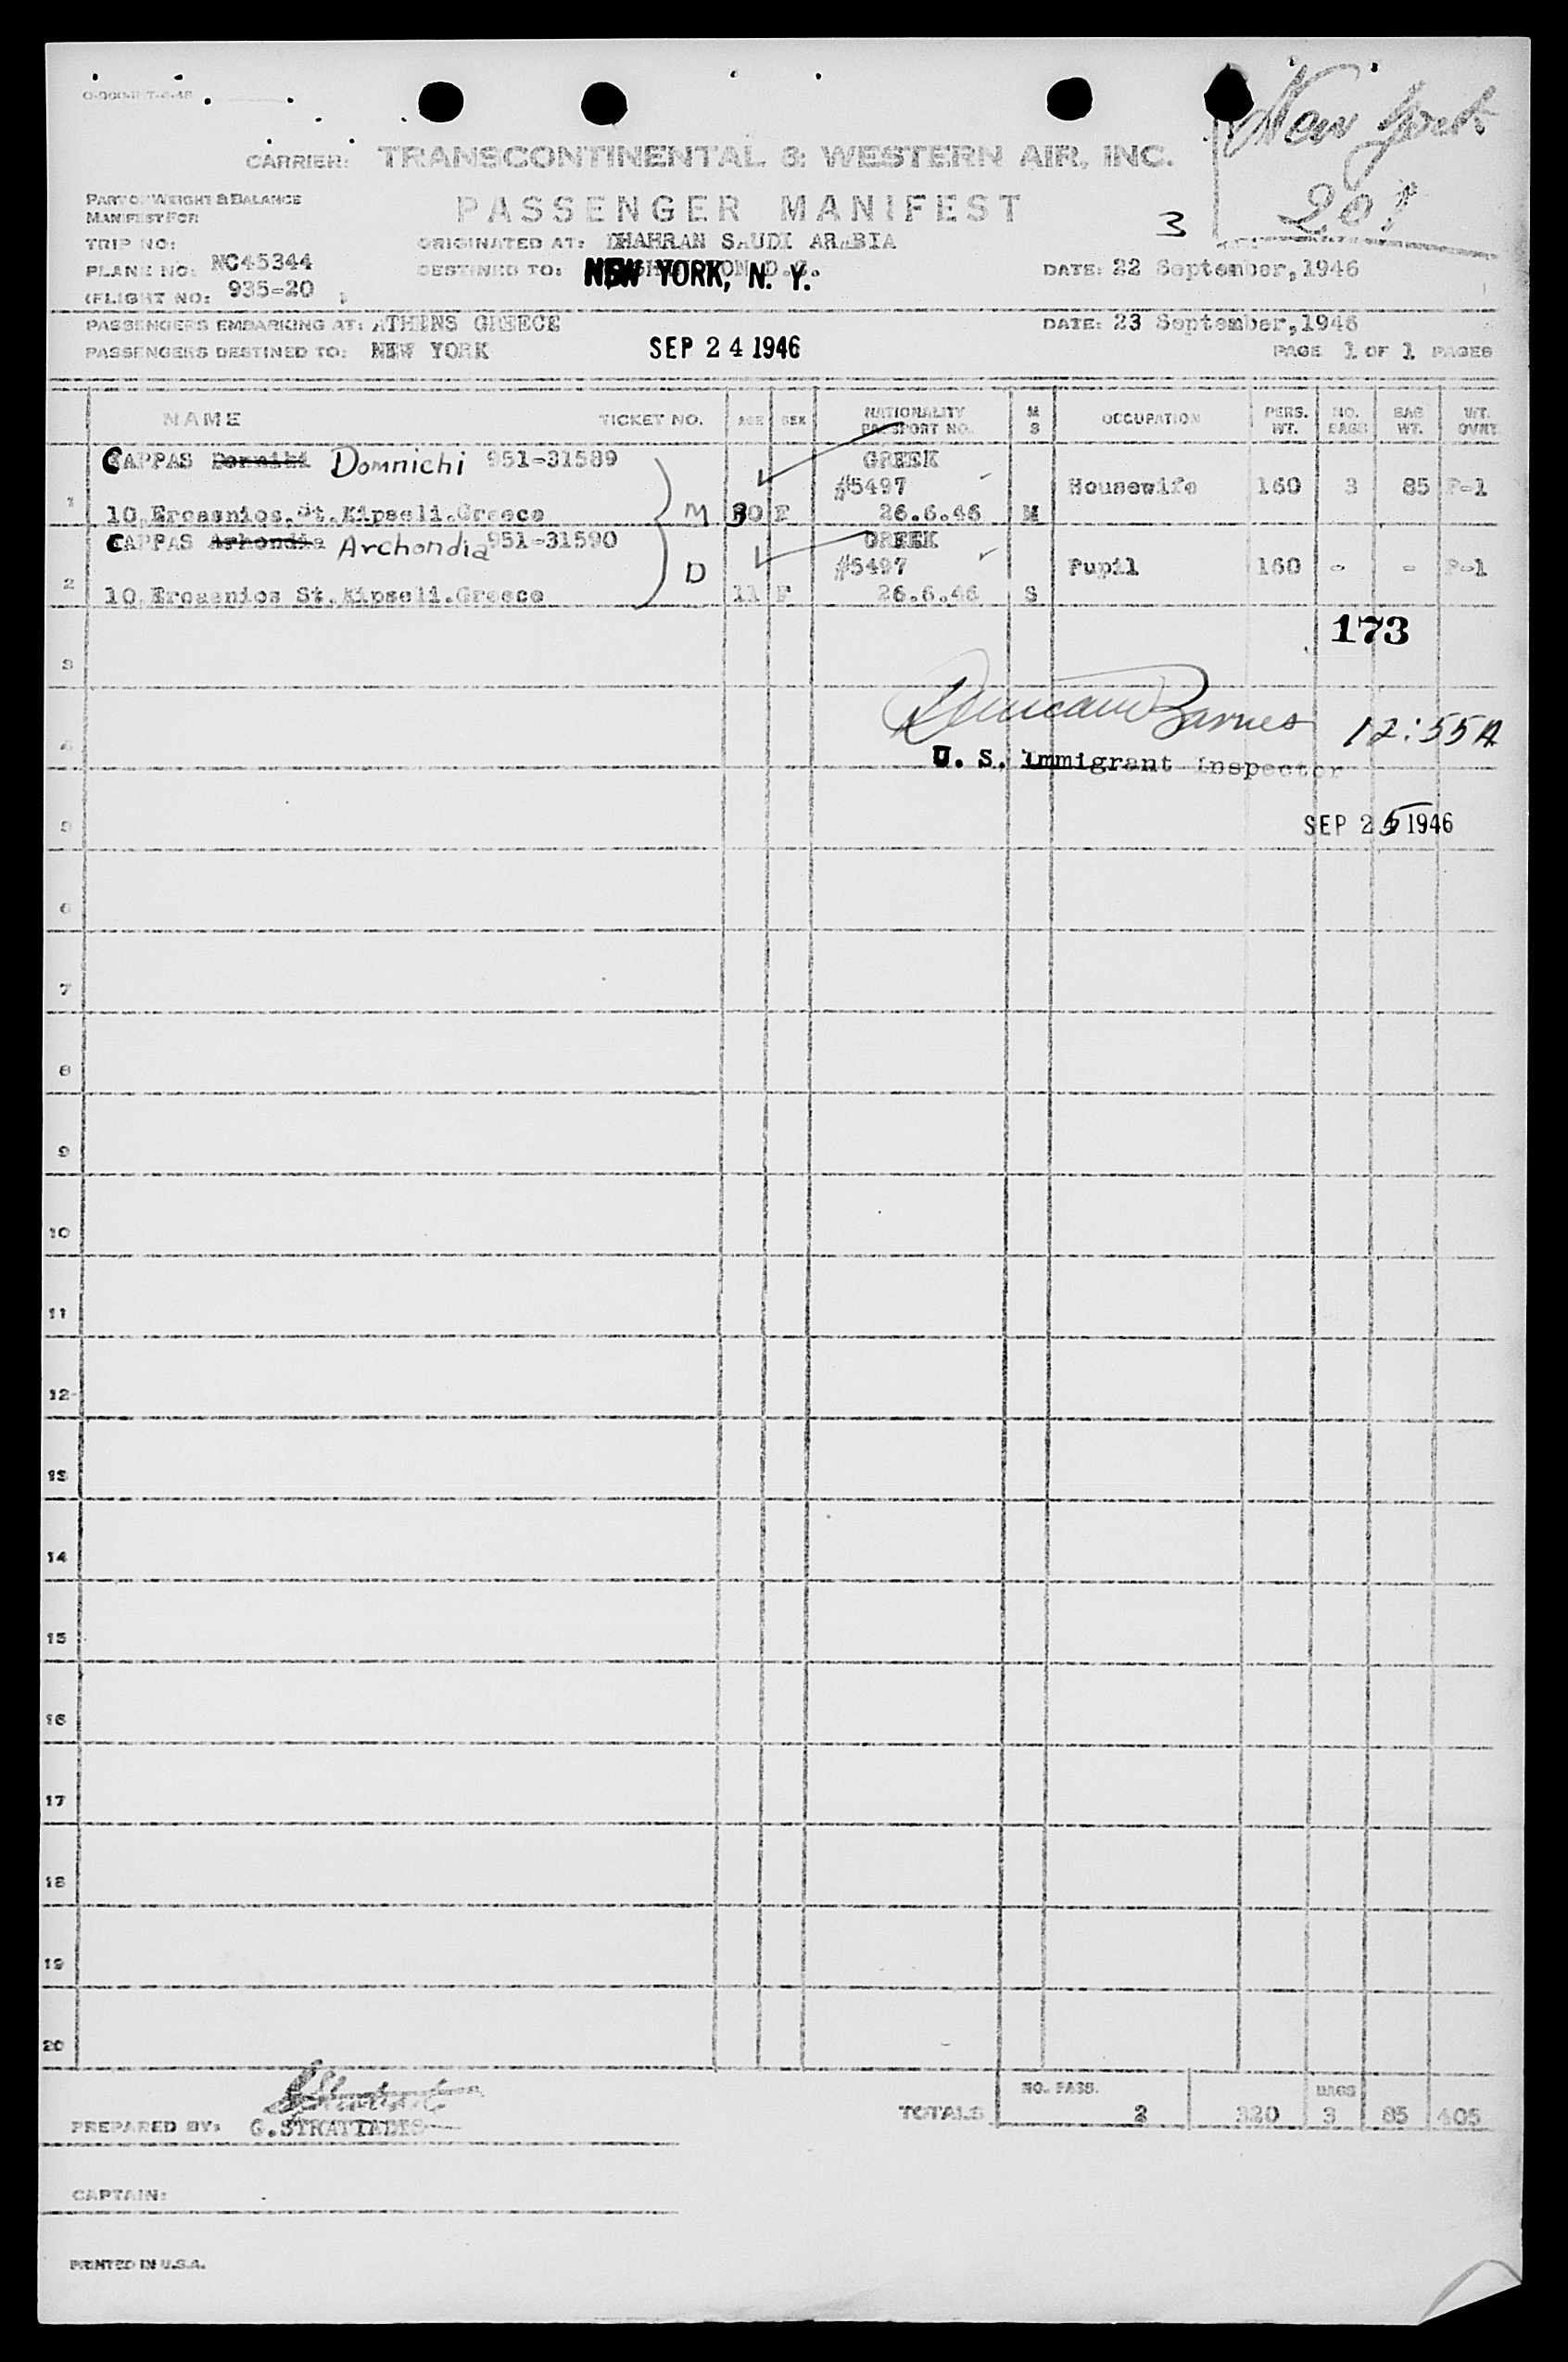 New York
201
CARRIER: TRANSCONTINENTAL & WESTERN AIR, INC.
PART OF WEIGHT & BALANCE
MANIFEST FOR
PASSENGER MANIFEST
3
TRIP NO:
ORIGINATED AT: DHAHRAN SAUDI ARABIA
PLANE NO: NC45344
DESTINED TO: NEW YORK, N. Y.
DATE: 22 September,1946
(FLIGHT NO: 935-20 )
PASSENGERS EMBARKING AT: ATHENS GREECE
DATE: 23 September,1946
PASSENGERS DESTINED TO: NEW YORK
SEP 24 1946
PAGE 1 OF 1 PAGES
NAME TICKET NO. AGE SEX NATIONALITY PASSPORT NO. M S OCCUPATION PERS. WT. NO. BAGS BAG WT. WT. OVRT
CAPPAS Domnichi 951-31589 GREEK
#5497 Housewife 160 3 85 P-1
1 10, St.Kipseli.Greece M 30 F 26.6.46 M
CAPPAS Arhondia Archondia 951-31590 GREEK
#5497 Pupil 160 - - P-1
2 10, St.Kipseli.Greece D 11 F 26.6.46 S
173
3
Duncan Barnes 12:55A
4
U. S. Immigrant Inspector
SEP 25 1946
5
6
7
8
9
10
11
12
13
14
15
16
17
18
19
20
TOTALS NO. PASS. 2 320 BAGS 3 85 405
PREPARED BY: G.STRATIADIS
CAPTAIN:
PRINTED IN U.S.A.